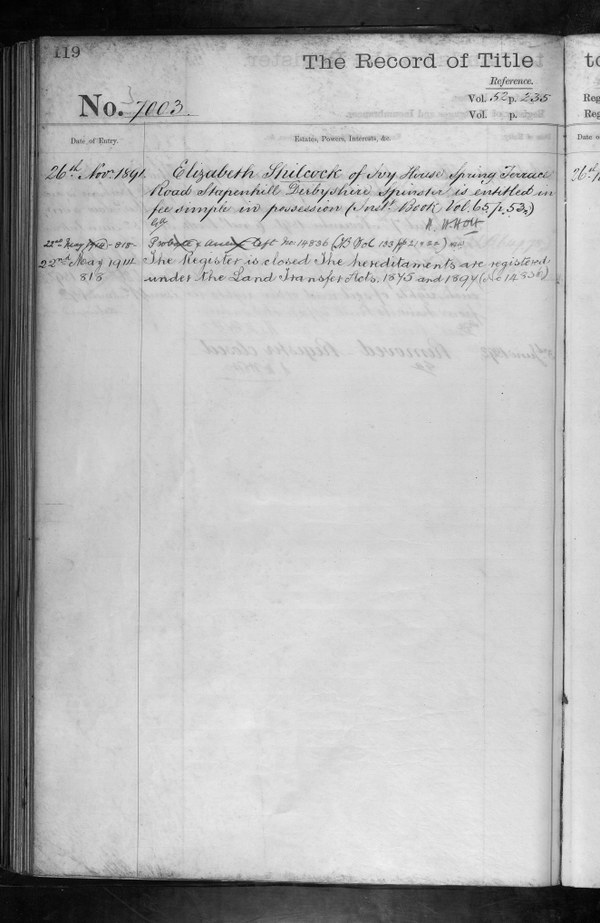 119
The Record of Title
Reference.
No. 7003.
Vol. 52 p. 235
Vol. p.
Date of Entry.
Estates, Powers, Interests, &c.
26th Novr 1891
Elizabeth Shilcock of Ivy House Spring Terrace
Road Stapenhill Derbyshire Spinster is entitled in
fee simple in possession (Inst. Book Vol. 65, p. 53.)
22nd May 1914 - 818 -
Probate Cert No 14836 (
22nd May 1914
818
The Register is closed The hereditaments are registered
under the Land Transfer Acts, 1875 and 1897 (No 14836)
to
Reg
Reg
Date o
26th